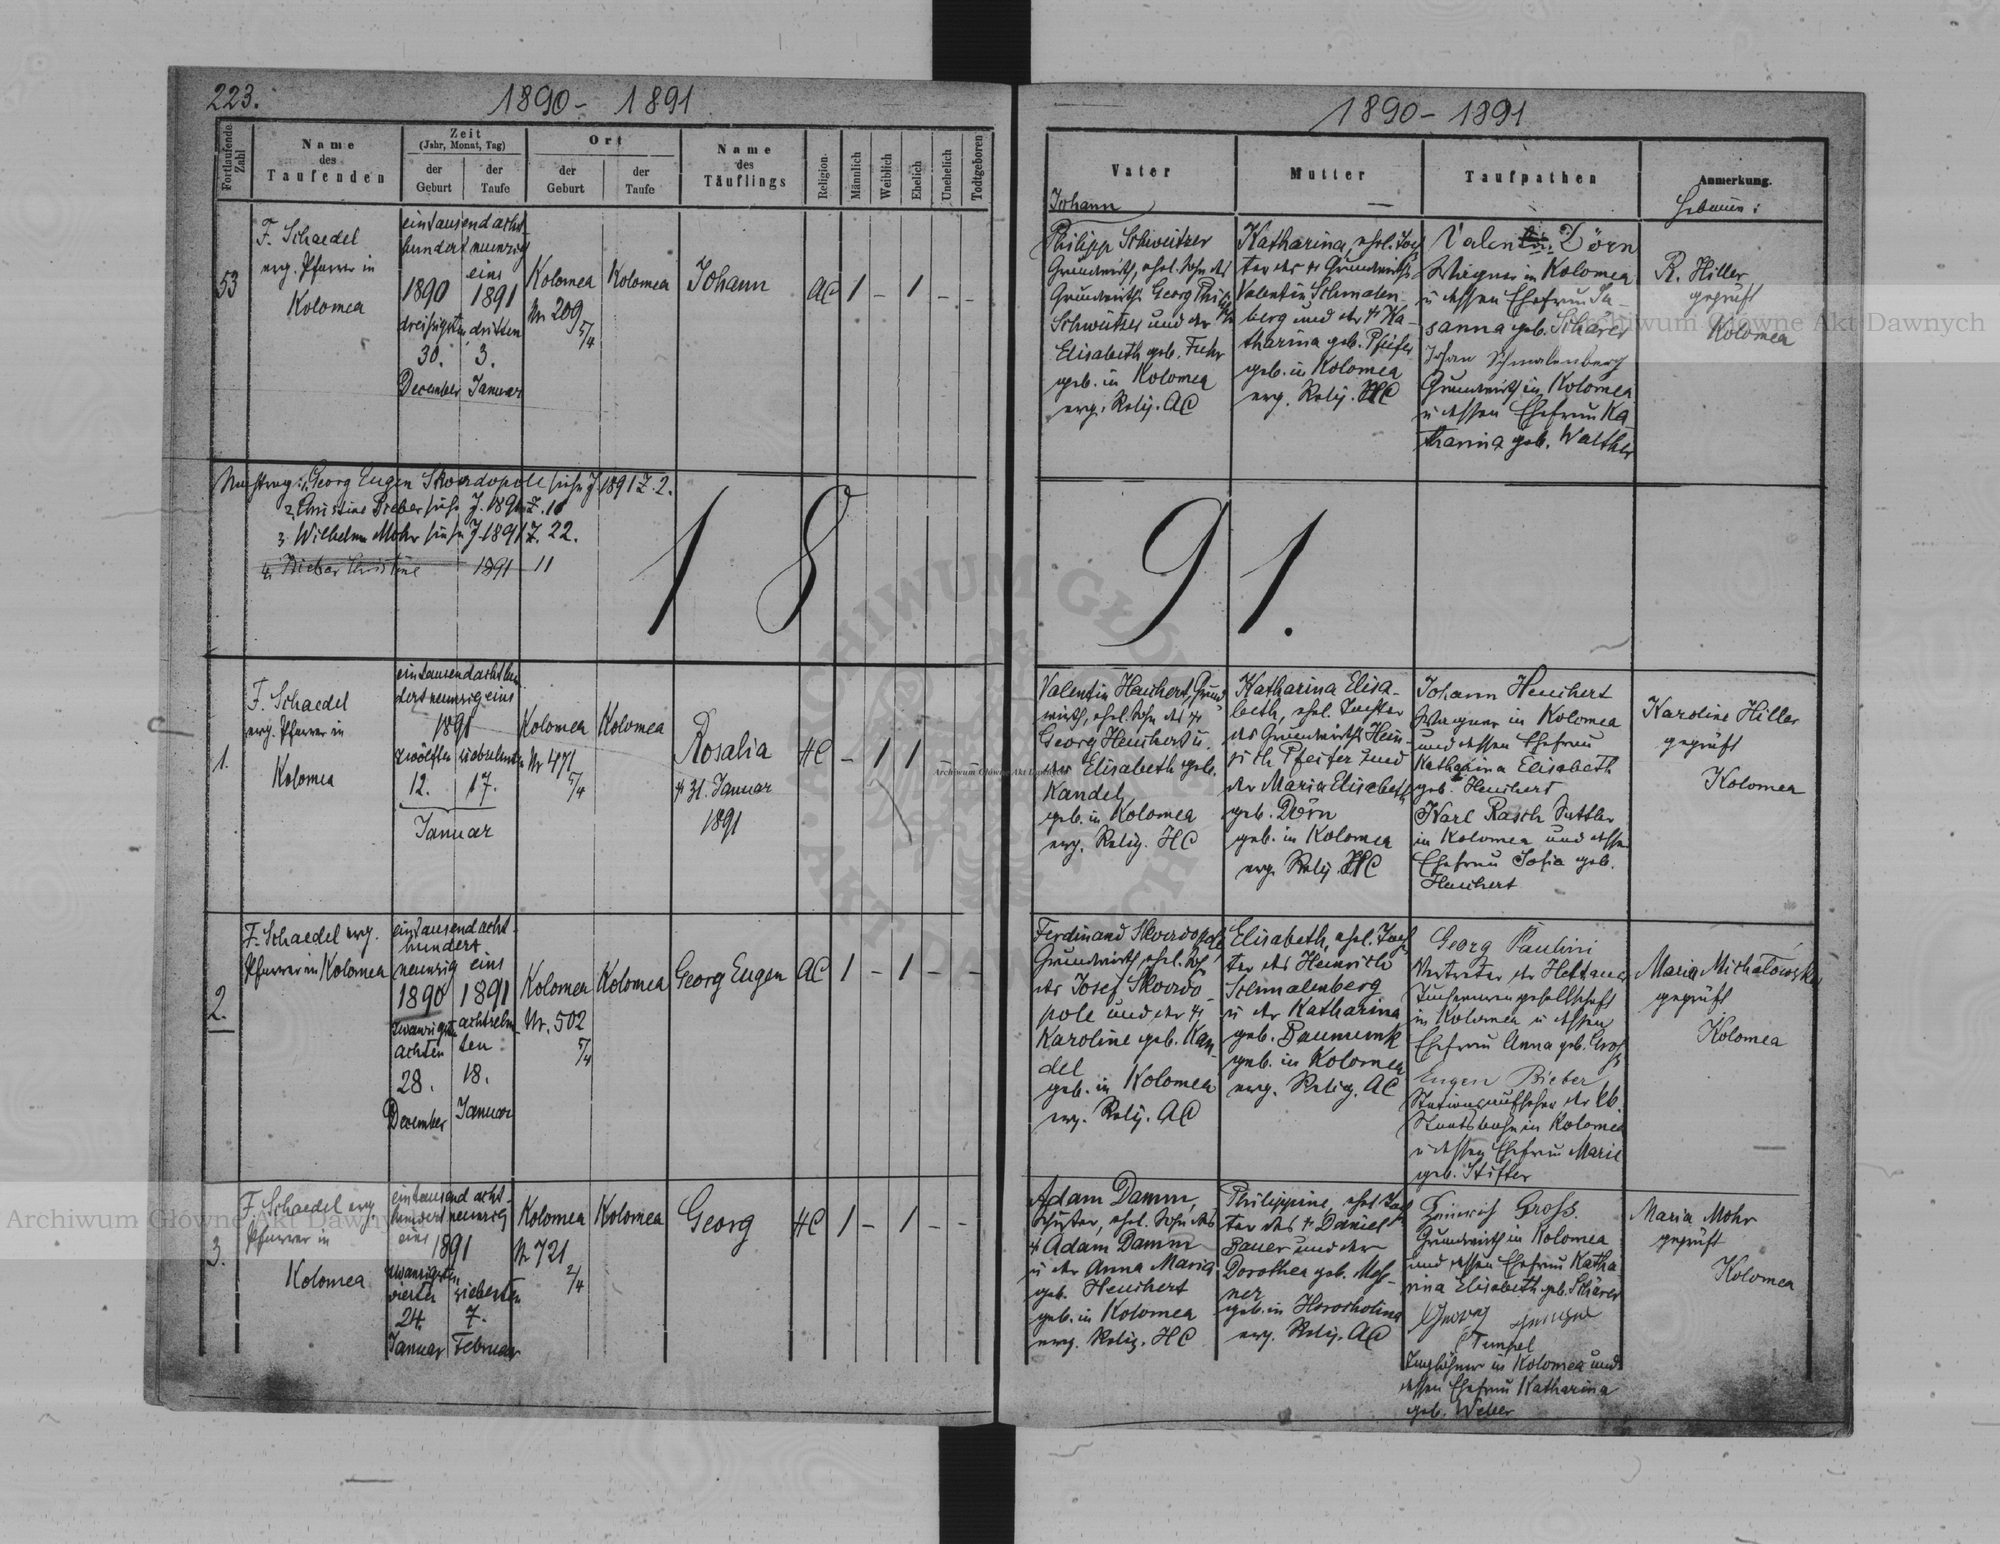 223.
1890 - 1891
Fortlaufende Zahl
Name
des
Taufenden
Zeit
(Jahr, Monat, Tag)
der
Geburt
der
Taufe
Ort
der
Geburt
der
Taufe
Name
des
Täuflings
Religion.
Männlich
Weiblich
Ehelich
Unehelich
Todtgeboren
53
F. Schaedel
evg. Pfarrer in
Kolomea
eintausend acht-
hundert neunzig
eins
1890 1891
dreißigsten dritten
30. 3.
December Januar
Kolomea
Nr 209
5/4
Kolomea
Johann
AC
1 - 1 - -
Nachtrag: 1, Georg Eugen Skwordopole siehe J. 1891 Z. 2.
2, Christine Bieber siehe J. 1891 Z. 10
3, Wilhelm Mohr siehe J. 1891 Z. 22.
4, Bieber Christine 1891 11
18
1.
F. Schaedel
evg. Pfarrer in
Kolomea
eintausendachthun
dertneunzigeins
1891
zwölften siebzehnten
12. 17.
Januar
Kolomea
Nr 471
5/4
Kolomea
Rosalia
† 31. Januar
1891
HC
- 1 1 - -
2.
F. Schaedel evg.
Pfarrer in Kolomea
eintausend acht-
hundert
neunzig eins
1890 1891
zwanzigst achtzehn-
achten ten
28. 18.
December Januar
Kolomea
Nr. 502
5/4
Kolomea
Georg Eugen
AC
1 - 1 - -
3.
F. Schaedel evg
Pfarrer in
Kolomea
eintausend acht-
hundert neunzig
eins 1891
zwanzigsten
vierten siebenten
24. 7.
Januar Februar
Kolomea
Nr 721
2/4
Kolomea
Georg
HC
1 - 1 - -
1890 - 1891
Vater
Mutter
Taufpathen
Anmerkung.
Hebamme:
Johann
Philipp Schweitzer
Grundwirth, ehel. Sohn des
Grundwirths Georg Philipp
Schweitzer und der
Elisabeth geb. Fuhr
geb. in Kolomea
evg. Relig. AC
Katharina, ehel. Toch
ter des † Grundwirths
Valentin Schmalen-
berg und der † Ka-
tharina geb. Pfeifer
geb. in Kolomea
evg. Relig. HC
Valentin Dörn
Wagner in Kolomea
u dessen Ehefrau Su-
sanna geb. Schärer
Johan Schmalenberg
Grundwirth in Kolomea
u dessen Ehefrau Ka
tharina geb. Walther
R. Hiller
geprüft
Kolomea
91.
Valentin Heuchert, Grund
wirth, ehel. Sohn des †
Georg Heuchert u.
der Elisabeth geb.
Kandel
geb. in Kolomea
evg. Relig. HC
Katharina Elisa-
beth, ehel. Tochter
des Grundwirths Hein-
rich Pfeifer und
der Maria Elisabeth
geb. Dörn
geb. in Kolomea
evg. Relig HC
Johann Heuchert
Wagner in Kolomea
und dessen Ehefrau
Katharina Elisabeth
geb. Heuchert
Karl Rasch Sattler
in Kolomea und dessen
Ehefrau Sofia geb.
Heuchert
Karoline Hiller
geprüft
Kolomea
Ferdinand Skwordopole
Grundwirth, ehel. Sohn
des Josef Skwordo-
pole und der †
Karoline geb. Kan-
del
geb. in Kolomea
evg. Relig. AC
Elisabeth, ehel. Toch-
ter des Heinrich
Schmalenberg
u der Katharina
geb. Baumunk
geb. in Kolomea
evg. Relig. AC
Georg Paulini
Vertreter der
in Kolomea u dessen
Ehefrau Anna geb. Groß
Eugen Bieber
Stationsaufseher der kk.
Staatsbahn in Kolomea
u dessen Ehefrau Marie
geb. Stifter
Maria Michałowska
geprüft
Kolomea
Adam Damm,
Schuster, ehel. Sohn des
† Adam Damm
u der Anna Maria
geb. Heuchert
geb. in Kolomea
evg. Relig. HC
Philippine, ehel Toch
ter des † Daniel
Bauer und der
Dorothea geb. Meß-
ner
geb. in Horocholina
evg. Relig. AC
Heinrich Groß.
Grundwirth in Kolomea
und dessen Ehefrau Katha
rina Elisabeth geb. Schärer
Georg
Tempel
Taglöhner in Kolomea und
dessen Ehefrau Katharina
geb. Weber
Maria Mohr
geprüft
Kolomea
Archiwum Główne Akt Dawnych
Archiwum Główne Akt Dawnych
Archiwum Główne Akt Dawnych
ARCHIWUM GŁÓWNE AKT DAWNYCH